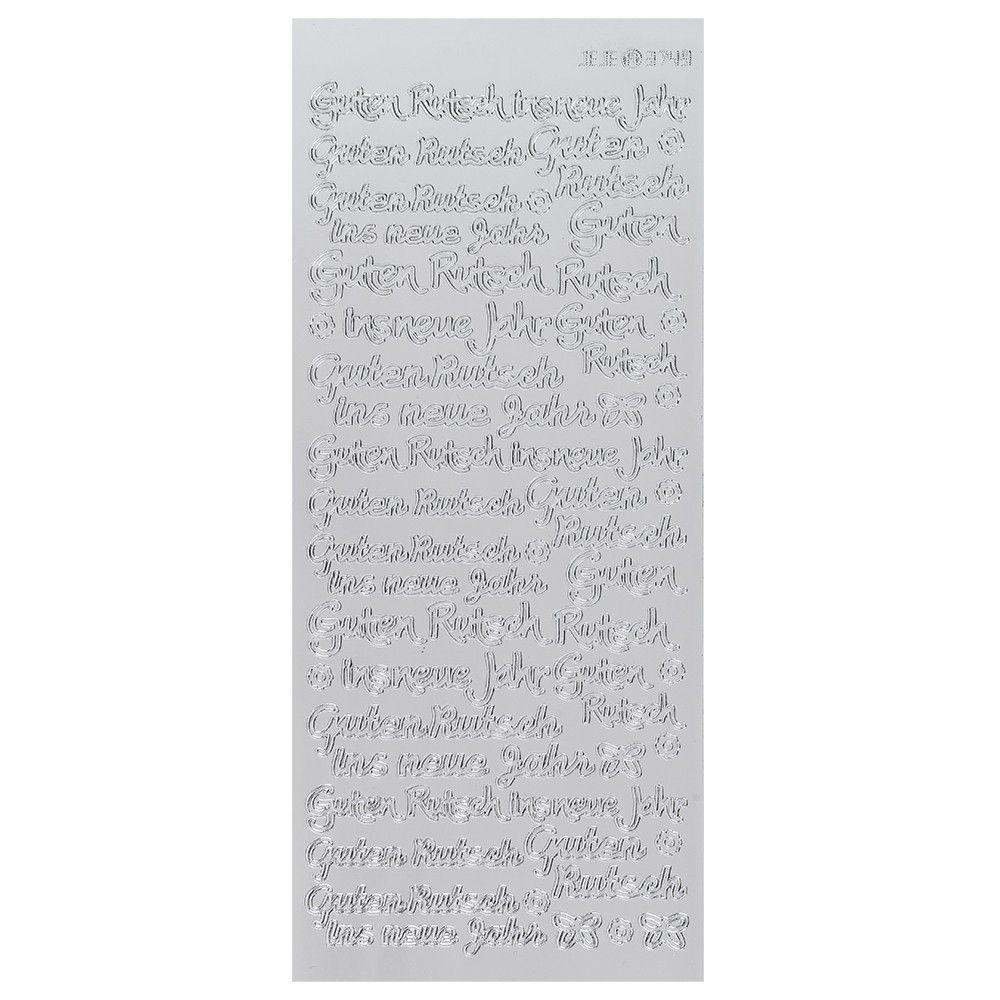 JEJE ® 3749
Guten Rutsch ins neue Jahr
Guten Rutsch
Guten
Rutsch
Guten Rutsch
ins neue Jahr
Guten
Rutsch
Guten Rutsch
ins neue Jahr
Guten
Rutsch
Guten Rutsch
ins neue Jahr
Guten Rutsch ins neue Jahr
Guten Rutsch
Guten
Rutsch
Guten Rutsch
ins neue Jahr
Guten
Rutsch
Guten Rutsch
ins neue Jahr
Guten
Rutsch
Guten Rutsch
ins neue Jahr
Guten Rutsch ins neue Jahr
Guten Rutsch
Guten
Rutsch
Guten Rutsch
ins neue Jahr